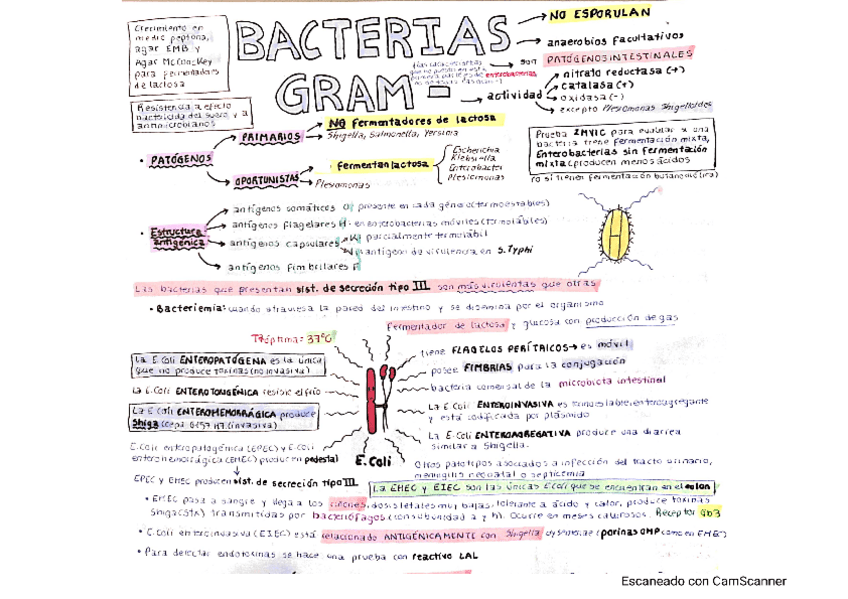 Crecimiento en
medio peptona,
agar EMB y
Agar McConkey
para fermentadores
de lactosa
Resistencia a efecto
bactericida del suero y a
antimicrobianos
BACTERIAS
GRAM -
NO ESPORULAN
anaerobios facultativos
son PATÓGENOS INTESTINALES
enterobacterias
actividad
nitrato reductasa (+)
catalasa (+)
oxidasa (-)
excepto Plesiomonas Shigelloides
• PATÓGENOS
PRIMARIOS
NO fermentadores de lactosa
Shigella, Salmonella, Yersinia
OPORTUNISTAS
fermentan lactosa
Escherichia
Klebsiella
Enterobacter
Plesiomonas
Plesiomonas
Prueba IMVIC para evaluar si una
bacteria tiene fermentación mixta,
Enterobacterias sin fermentación
mixta (producen menos ácidos
• Estructura
antigénica
antígenos somáticos O: presente en cada género (termoestables)
antígenos flagelares H - en enterobacterias móviles (termolábiles)
antígenos capsulares
K: parcialmente termolábil
Vi: antígeno de virulencia en S. Typhi
antígenos fimbrilares F
Las bacterias que presentan sist. de secreción tipo III son más virulentas que otras
• Bacteriemia: cuando atraviesa la pared del intestino y se disemina por el organismo
Fermentador de lactosa y glucosa con producción de gas
T° óptima: 37°C
tiene FLAGELOS PERÍTRICOS → es móvil
posee FIMBRIAS para la conjugación
bacteria comensal de la microbiota intestinal
La E. Coli ENTEROPATÓGENA es la única
que no produce toxinas (no invasiva)
La E. Coli ENTEROTOXIGÉNICA resiste el frío
La E. Coli ENTEROHEMORRÁGICA produce
Shiga (cepa O157 H7 (invasiva)
La E Coli ENTEROINVASIVA es
y está codificada por plásmido
La E-Coli ENTEROAGREGATIVA produce una diarrea
similar a Shigella.
E. Coli enteropatogénica (EPEC) y E-Coli
enterohemorrágica (EHEC) producen pedestal
E. Coli
Otros patotipos asociados a infección del tracto urinario,
meningitis neonatal o septicemia
EPEC y EHEC producen sist. de secreción tipo III
La EHEC y EIEC son las únicas E coli que se encuentran en el colon
• EHEC pasa a sangre y llega a los riñones, dosis letales muy bajas, tolerante a ácido y calor, produce toxinas
Shiga (Stx) transmitidas por bacteriófagos (con subunidad a y b). Ocurre en meses calurosos. Receptor Gb3
• E. Coli enteroinvasiva (EIEC) está relacionado ANTIGÉNICAMENTE con Shigella dysenteriae (porinas OMP como en EHEC)
• Para detectar endotoxinas se hace una prueba con reactivo LAL
Escaneado con CamScanner